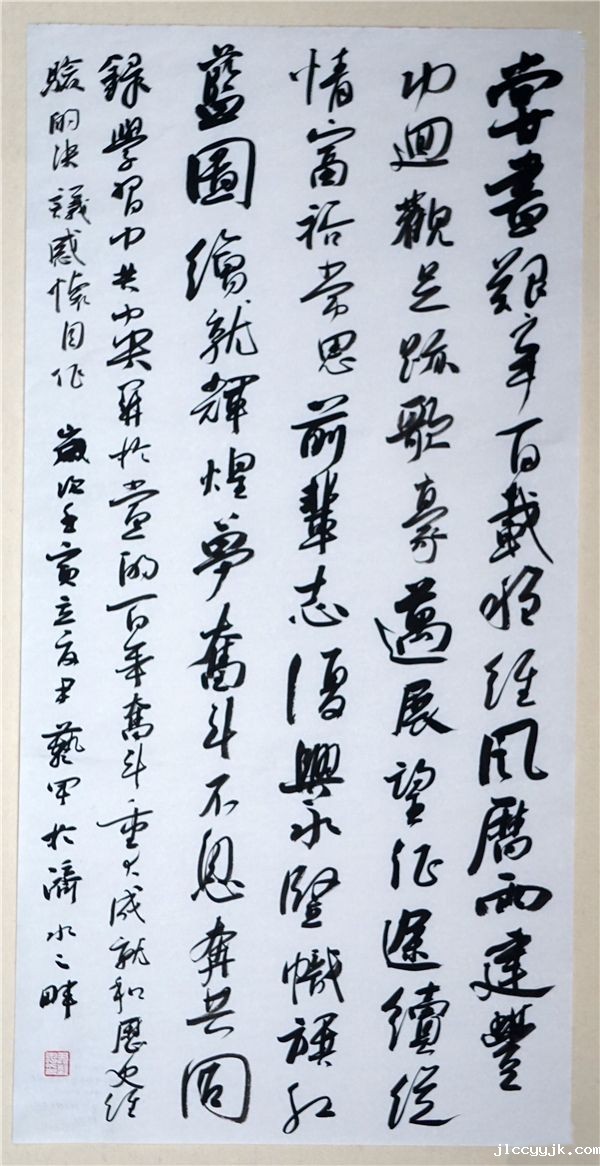 嘗盡艱辛百載經風歷雨建豐
功迴觀足跡歌豪邁展望征途續縱
情富裕常思前輩志復興永豎幟旗紅
藍圖繪就輝煌夢奮斗不息奔共同
錄學習中共中央關於黨的百年奮斗重大成就和歷史經
驗的決議感懷自作 歲次壬寅立夏藝於濟水之畔
jlccyyjk.com